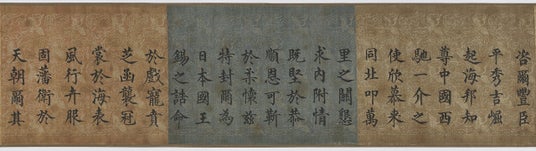 咨爾豐臣
平秀吉崛
起海邦知
尊中國西
馳一介之
使欣慕來
同北叩萬
里之關懇
求內附情
既堅於恭
順恩可靳
於柔懷茲
特封爾為
日本國王
錫之誥命
於戲寵賁
芝函襲冠
裳於海表
風行卉服
固藩衛於
天朝爾其